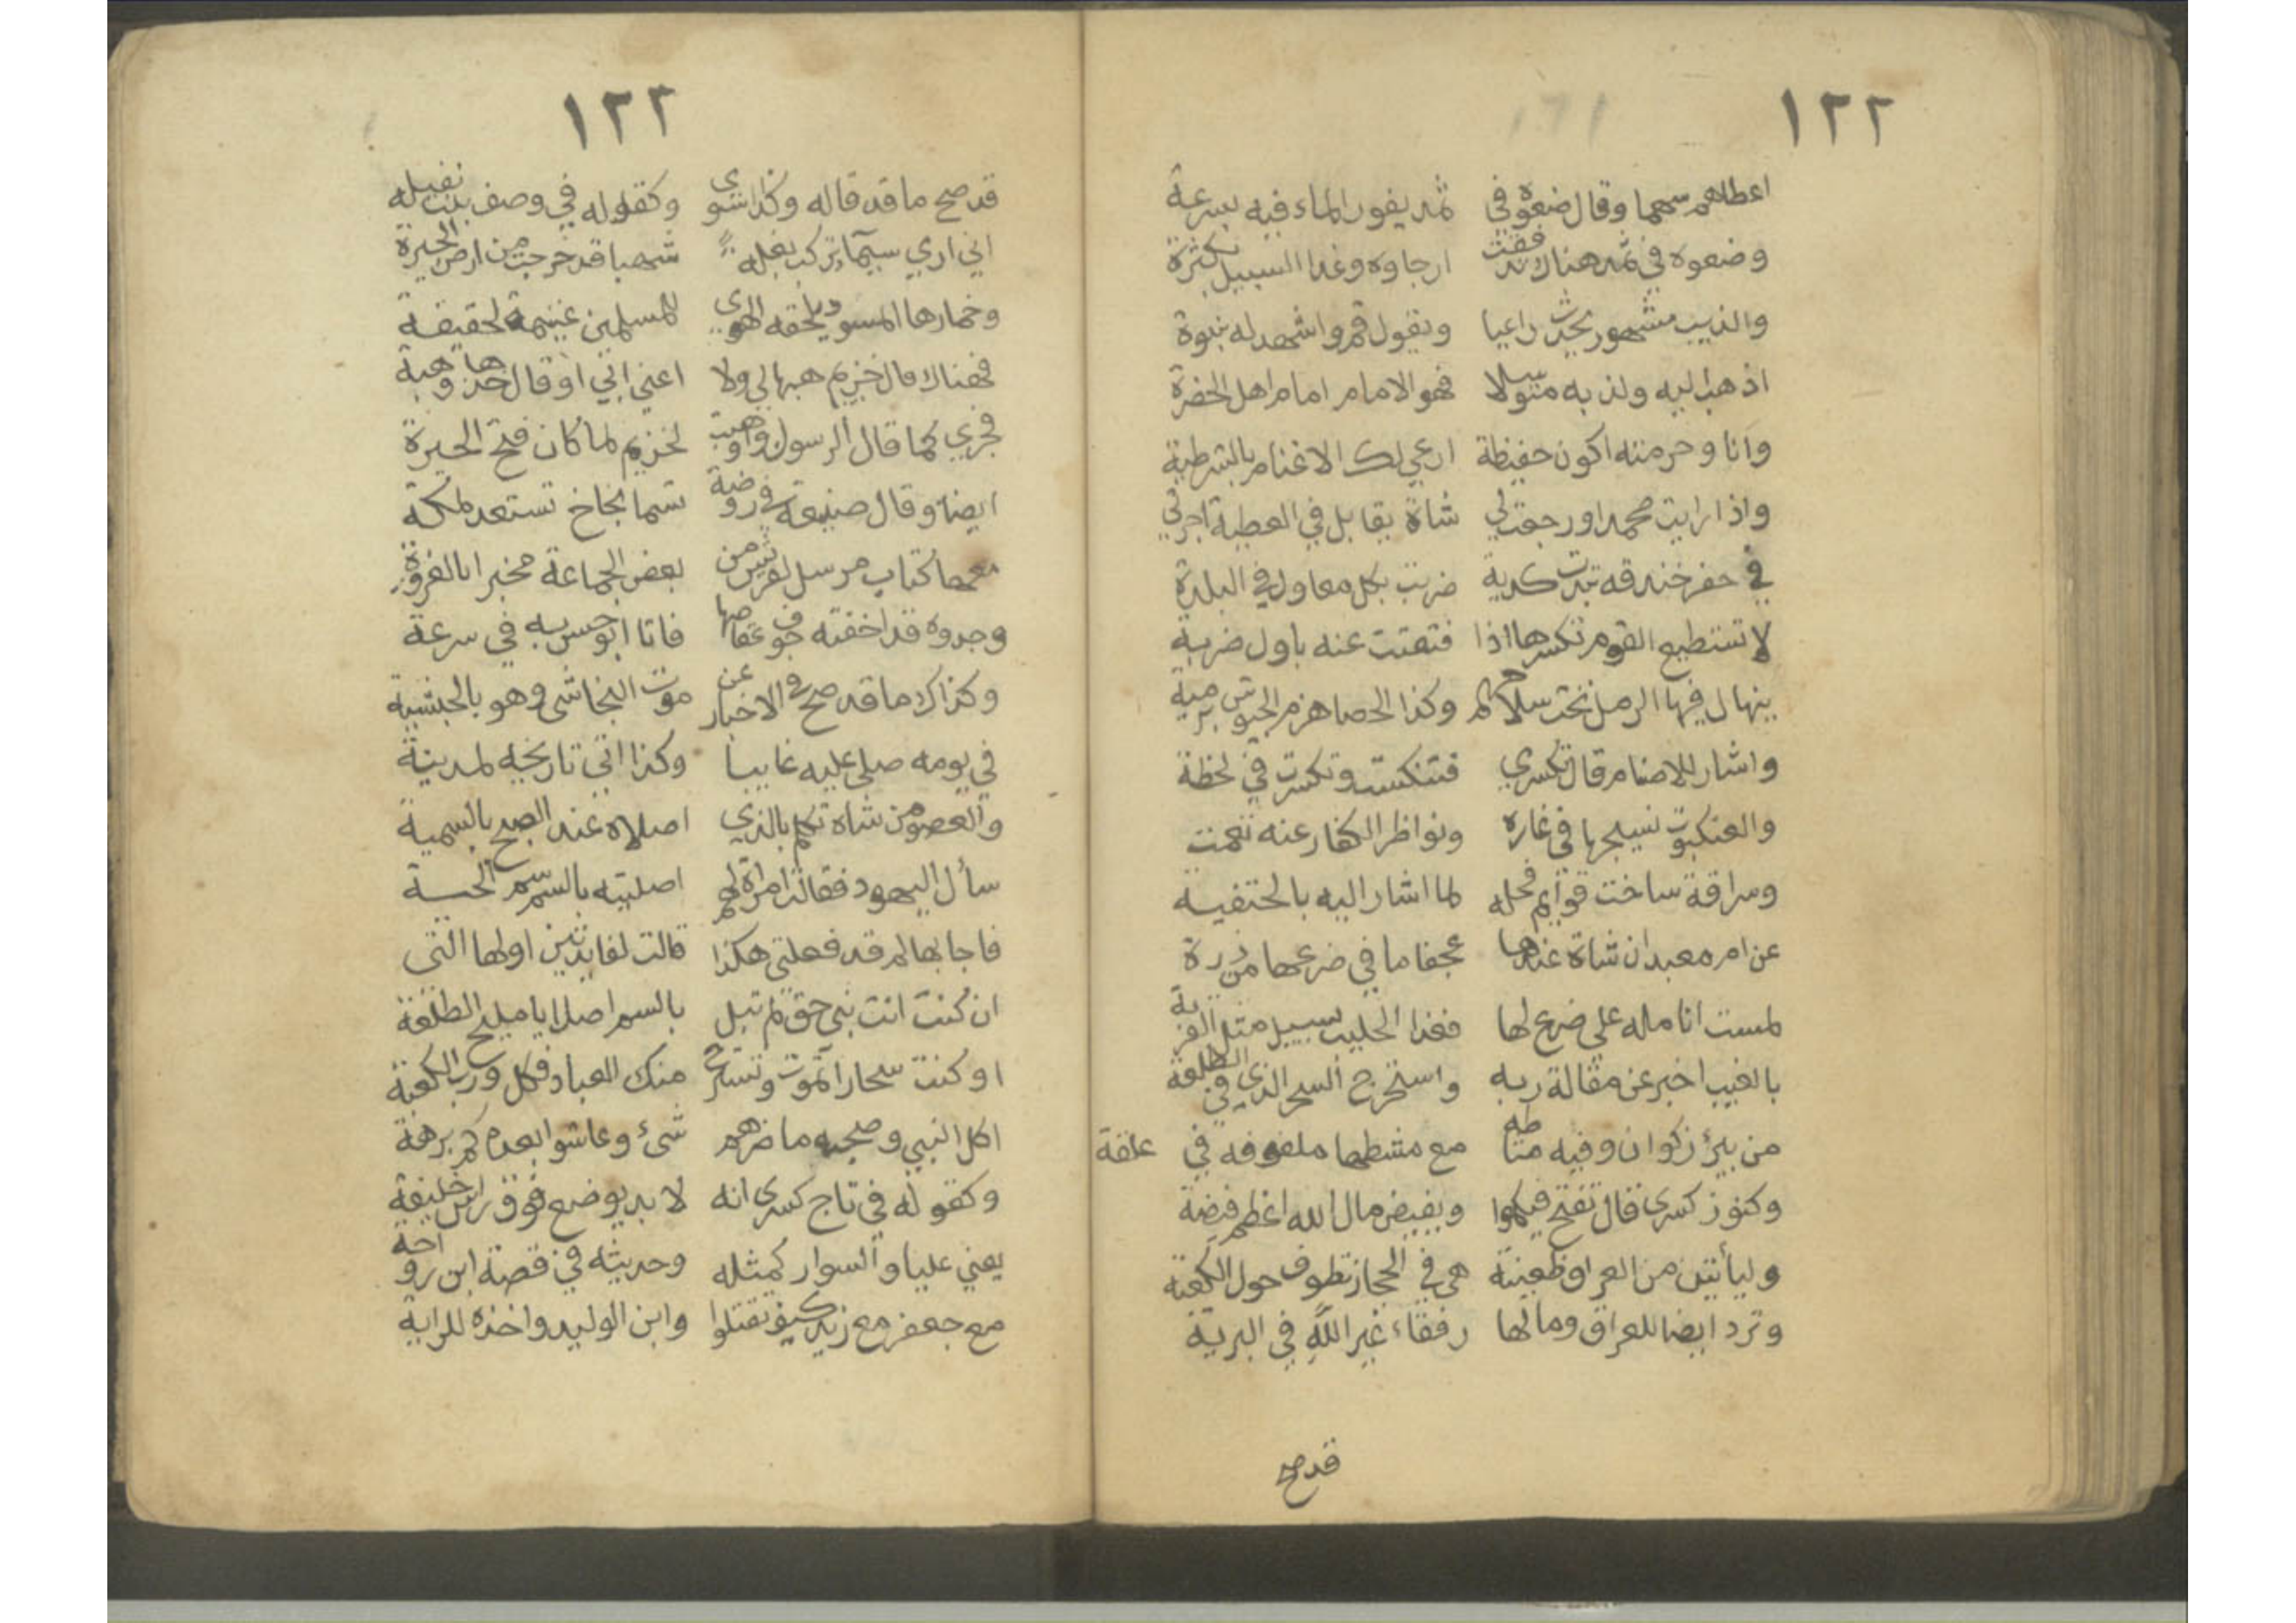 ١٢٢
اعطاهم سهما وقال ضعوه في ثمد يفور الماء فيه بسرعة
وضعوه في ثمد هناك فقت ارجاوه وغدا السبيل بكثرة
والذيب مشهور يحدث راعيا ويقول قم واشهد له بنبوة
اذهب اليه ولذ به متوسلا فهو الامام امام اهل الحضرة
وانا وحرمته اكون حفيظة ارعي لك الاغنام بالشرطية
واذا رايت محمدا ورجعت لي شاة يقابل في العطية اجرتي
في حفر خندقه تبدت كدية ضربت بكل معاول في البلدة
لا تستطيع القوم تكسرها اذا فتفتت عنه باول ضربة
ينهال فيها الرمل تحت سلاحهم وكذا الحصا هزم الجيوش برمية
واشار للاصنام قال تكسري فتنكست وتكسرت في لحظة
والعنكبوت نسيجها في غاره ونواظر الكفار عنه تعمت
وسراقة ساخت قوايم فحله لما اشار اليه بالحتفية
عن ام معبد ان شاة عندها عجفا ما في ضرعها من درة
لمست انامله على ضرع لها فغدا الحليب يسيل مثل القربة
بالغيب اخبر عن مقالة ربه واستخرج السحر الذي في الطلعة
من بير ذكوان وفيه مشاطه مع مشطها ملفوفه في علقة
وكنوز كسرى قال تفتح فيكموا ويفيض مال الله اعظم فيضة
وليأتين من العراق ظعينة هي في الحجاز تطوف حول الكعبة
وترد ايضا للعراق ومالها رفقاء غير الله في البرية
قد صح
١٢٣
قد صح ما قد قاله وكذا شوى وكقوله في وصف بنت نفيله
اني اري سيما تركب بغلة شهبا قد خرجت من ارض الحيرة
وخمارها المسود يلحقه الهوى للمسلمين غنيمة لحقيقة
فهناك قال خزيم هبها لي ولا اعني اتي او قال خذها وهبة
فجري كما قال الرسول واوهبت لخزيم لما كان فتح الحيرة
ايضا وقال ضيعة في روضة تسما بخاخ تستعد لمكة
معها كتاب مرسل لقريش من بعض الجماعة مخبرا بالغزوة
وجدوه قد اخفته جوف عقاصها فاتا ابو حسن به في سرعة
وكذاك ما قد صح في الاخبار عن موت النجاشى وهو بالحبشية
في يومه صلى عليه غايبا وكذا اتي تاريخه لمدينة
والعضو من شاة تكلم بالذي اصلاه عند الصبح بالسمية
سأل اليهود فقالت امراة لهم اصليته بالسم سم الحسة
فاجابها لم قد فعلتي هكذا قالت لفايدتين اولها التى
ان كنت انت نبي حق لم تبل بالسم اصلا يا مليح الطلعة
او كنت سحارا تموت وتستريح منك العباد فكل ورب الكعبة
اكل النبي وصحبه ما ضرهم شئ وعاشوا بعدهم كم برهة
وكقوله في تاج كسرى انه لا بد يوضع فوق راس خليفة
يعني عليا والسوار كمثله وحديثه في قصة ابن رواحة
مع جعفر مع زيد كيف تقتلوا وابن الوليد واخذه للراية